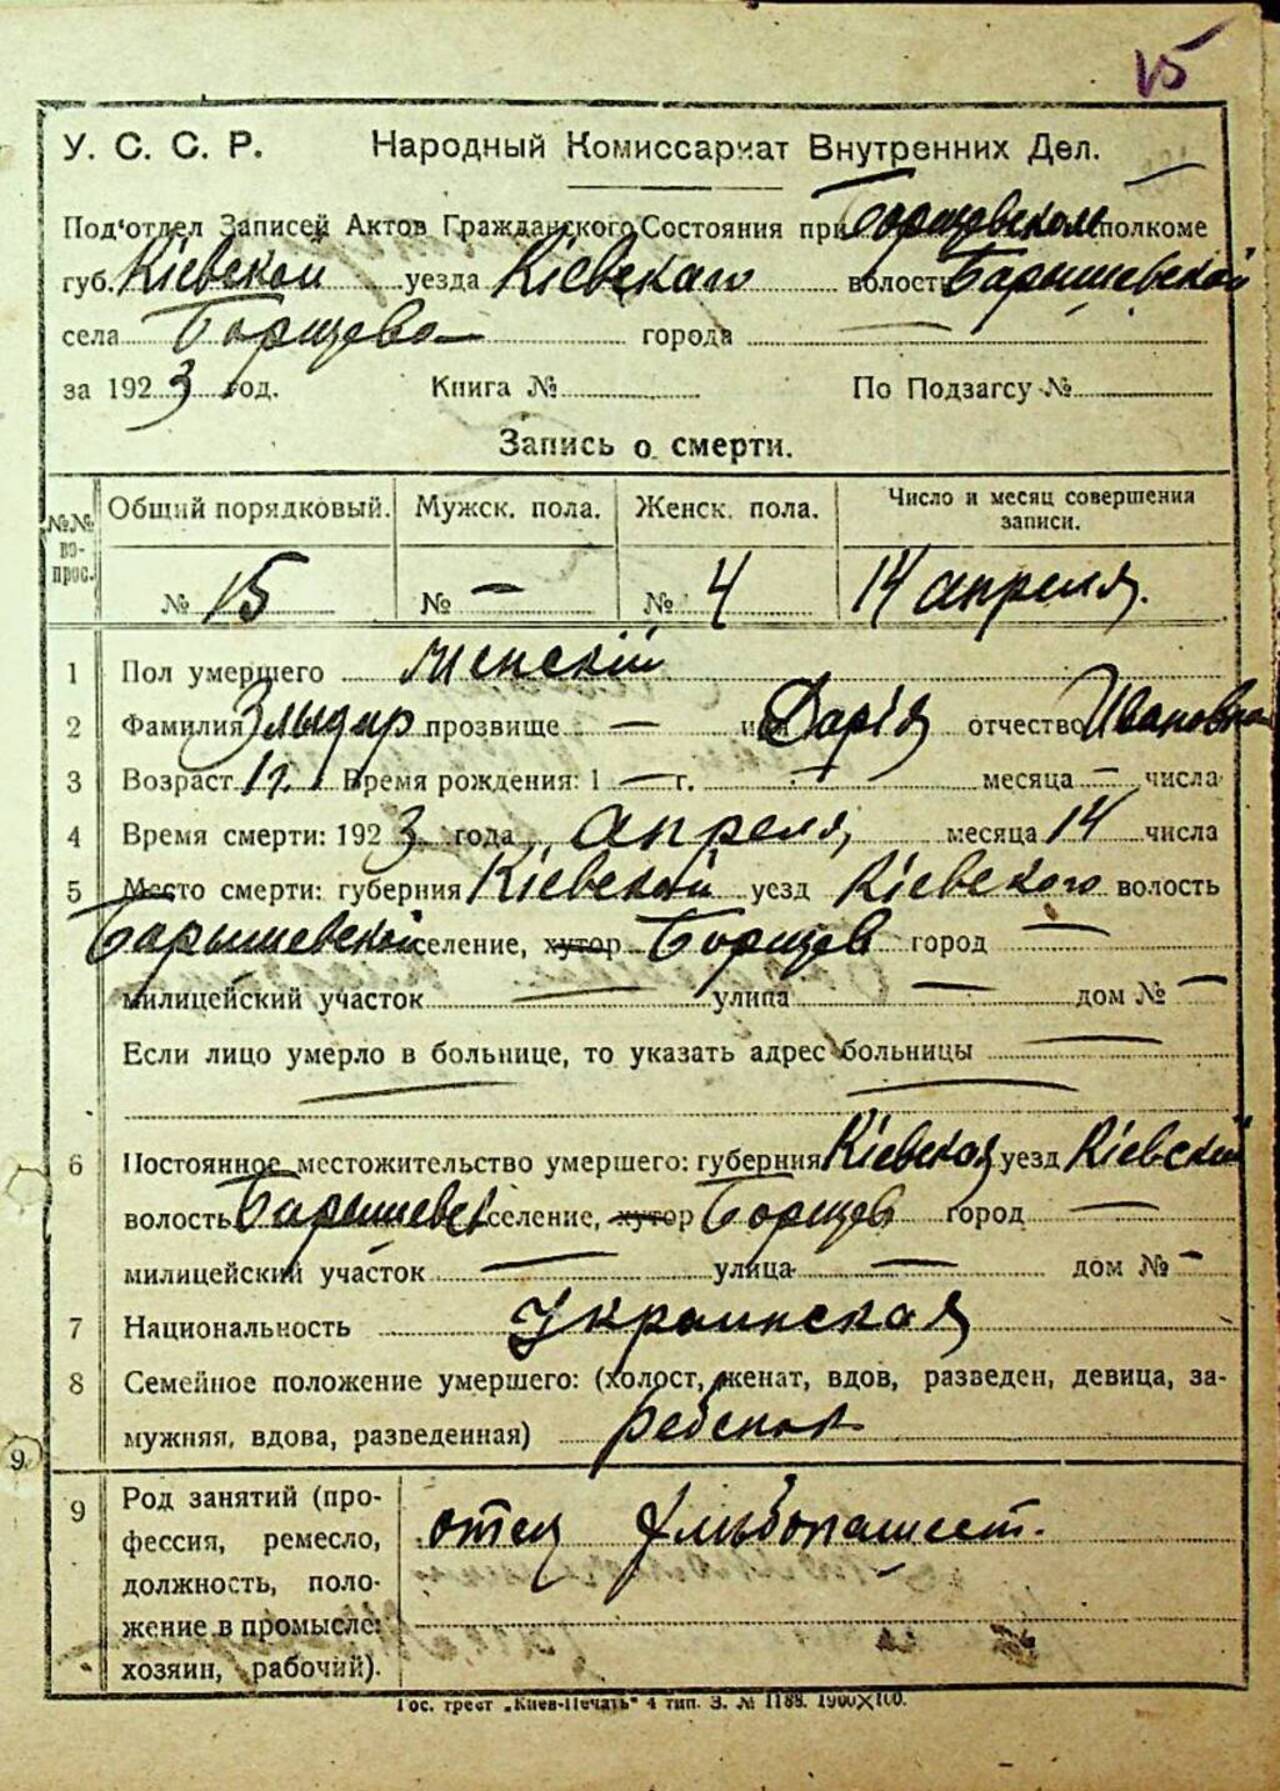 15
У. С. С. Р. Народный Комиссариат Внутренних Дел.
Под'отдел Записей Актов Гражданского Состояния при Борщовском исполкоме
губ. Кіевской уезда Кіевскаго волости Барышевской
села Борщево города —
за 1923 год. Книга № По Подзагсу №
Запись о смерти.
№№ во-прос. Общий порядковый. Мужск. пола. Женск. пола. Число и месяц совершения записи.
№ 15 № — № 4 14 апреля.
1 Пол умершего женскій
2 Фамилия Злыдар прозвище — имя Дарія отчество Ивановна
3 Возраст 1 г. Время рождения: 1 — г. — месяца — числа
4 Время смерти: 1923 года апреля, месяца 14 числа
5 Место смерти: губерния Кіевской уезд Кіевскаго волость
Барышевской селение, хутор Борщев город —
милицейский участок — улица — дом № —
Если лицо умерло в больнице, то указать адрес больницы —
— —
6 Постоянное местожительство умершего: губерния Кіевская уезд Кіевскій
волость Барышевск селение, хутор Борщев город —
милицейский участок — улица — дом № —
7 Национальность Украинская
8 Семейное положение умершего: (холост, женат, вдов, разведен, девица, за-
мужняя, вдова, разведенная) ребенок
9
9 Род занятий (про-
фессия, ремесло,
должность, поло-
жение в промысле:
хозяин, рабочий).
отец хлебопашест.
Гос. трест „Киев-Печать“ 4 тип. З. № 1188. 1900×100.